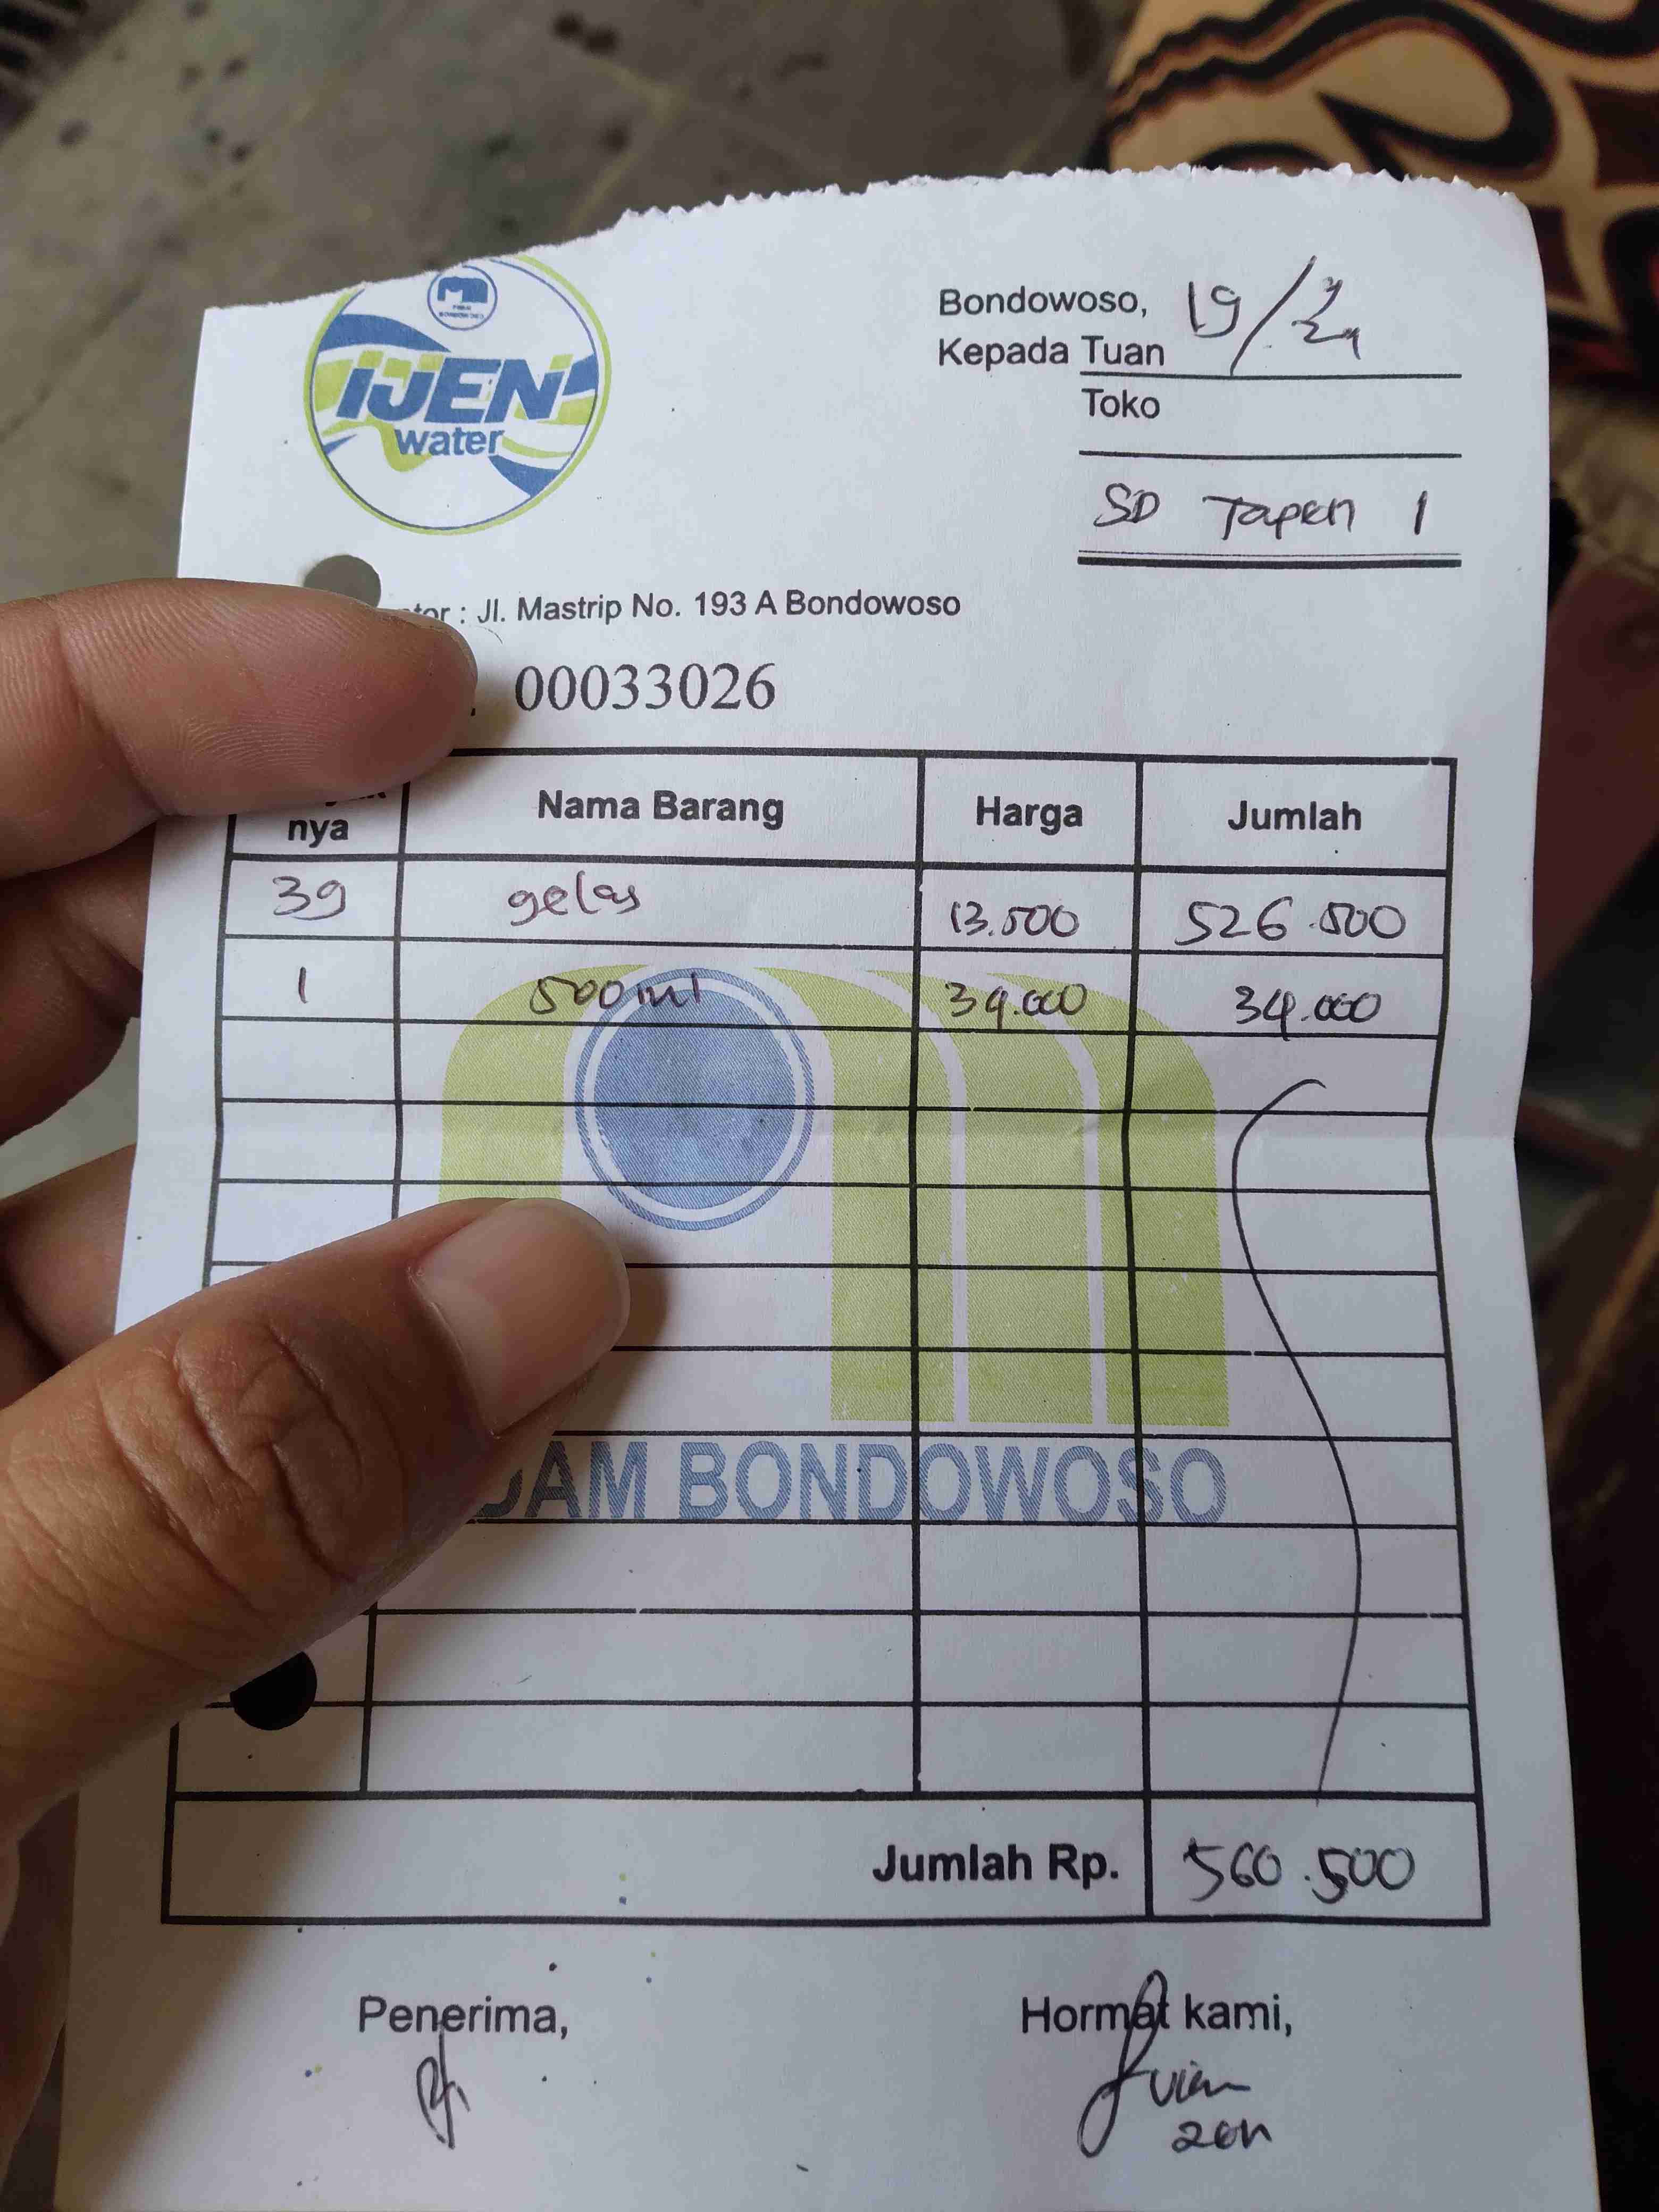 IJEN
water
Bondowoso, 19/2 24
Kepada Tuan
Toko
SD Tapen 1
: Jl. Mastrip No. 193 A Bondowoso
00033026
nya Nama Barang Harga Jumlah
39 gelas 13.500 526.500
1 500 ml 34.000 34.000
DAM BONDOWOSO
Jumlah Rp. 560.500
Penerima, Hormat kami,